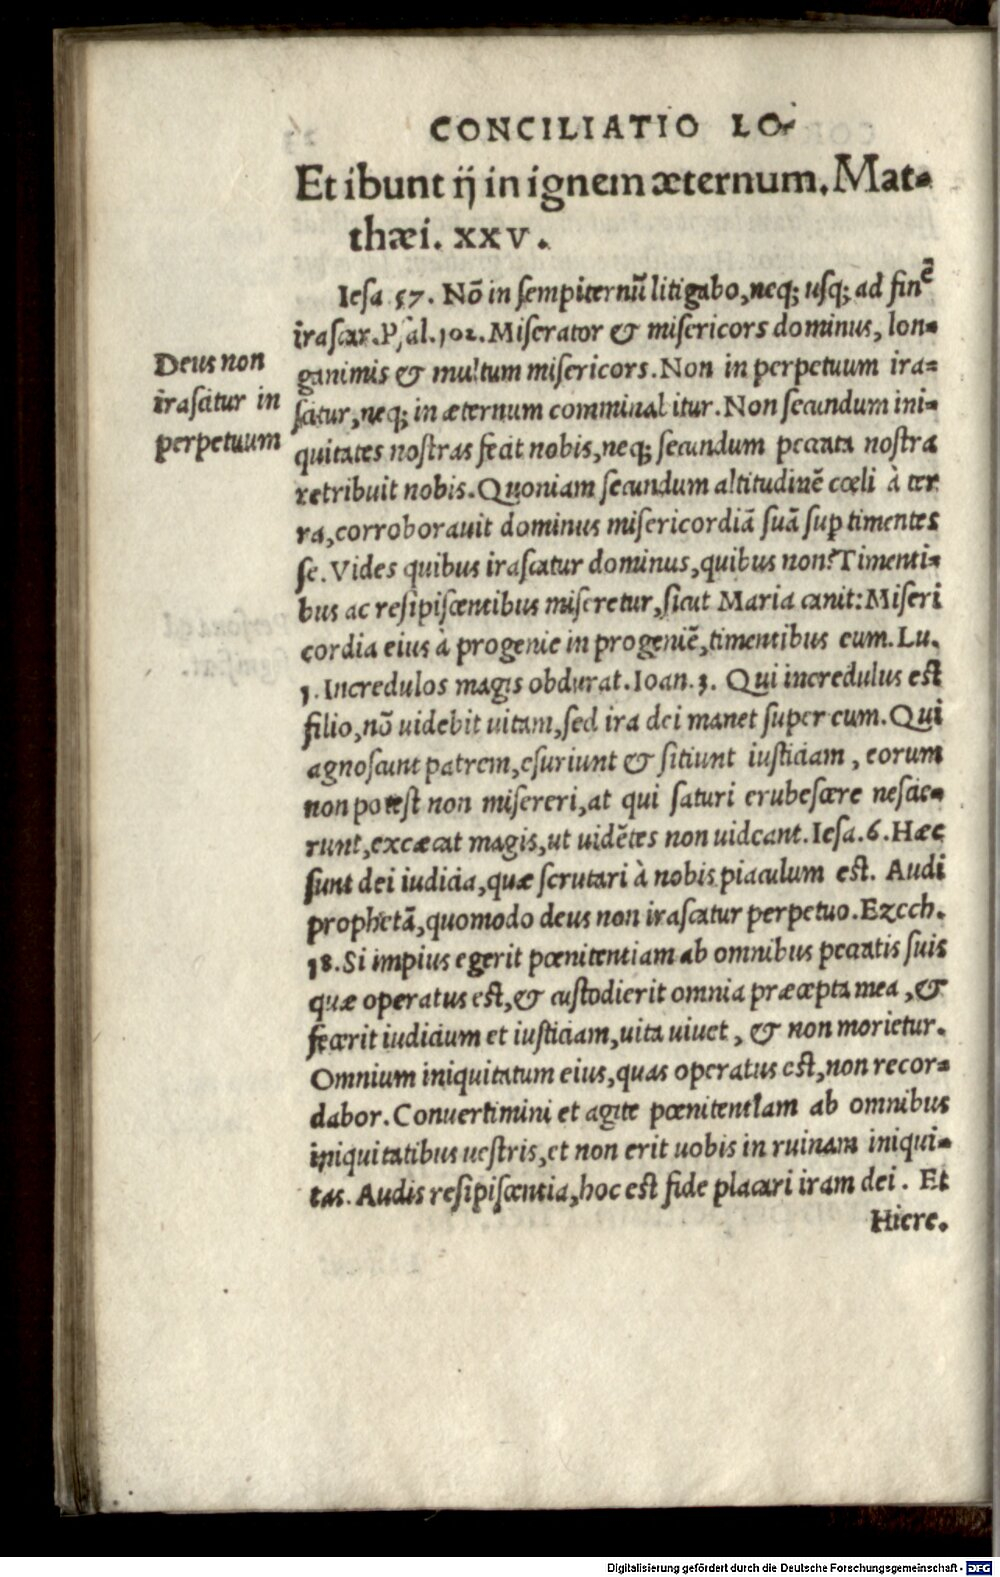 CONCILIATIO LO-
Et ibunt ij in ignem æternum. Mat-
thæi. xxv.
Iesa 57. Nõ in sempiternũ litigabo, neq; usq; ad finẽ
irascar. Psal. 102. Miserator & misericors dominus, lon-
ganimis & multum misericors. Non in perpetuum ira-
scitur, neq; in æternum comminabitur. Non secundum ini-
quitates nostras fecit nobis, neq; secundum peccata nostra
retribuit nobis. Quoniam secundum altitudinẽ cœli à ter
ra, corroborauit dominus misericordiã suã sup timentes
se. Vides quibus irascatur dominus, quibus non? Timenti-
bus ac resipiscentibus miseretur, sicut Maria canit: Miseri
cordia eius à progenie in progeniẽ, timentibus eum. Lu.
1. Incredulos magis obdurat. Ioan. 3. Qui incredulus est
filio, nõ uidebit uitam, sed ira dei manet super eum. Qui
agnoscunt patrem, esuriunt & sitiunt iusticiam, eorum
non potest non misereri, at qui saturi erubescere nescie-
runt, excæcat magis, ut uidẽtes non uideant. Iesa. 6. Hæc
sunt dei iudicia, quæ scrutari à nobis piaculum est. Audi
prophetã, quomodo deus non irascatur perpetuo. Ezech.
18. Si impius egerit pœnitentiam ab omnibus peccatis suis
quæ operatus est, & custodierit omnia præcepta mea, &
fecerit iudicium et iusticiam, uita uiuet, & non morietur.
Omnium iniquitatum eius, quas operatus est, non recor-
dabor. Conuertimini et agite pœnitentiam ab omnibus
iniquitatibus uestris, et non erit uobis in ruinam iniqui-
tas. Audis resipiscentia, hoc est fide placari iram dei. Et
Hiere.
Deus non
irascitur in
perpetuum
Digitalisierung gefördert durch die Deutsche Forschungsgemeinschaft - DFG